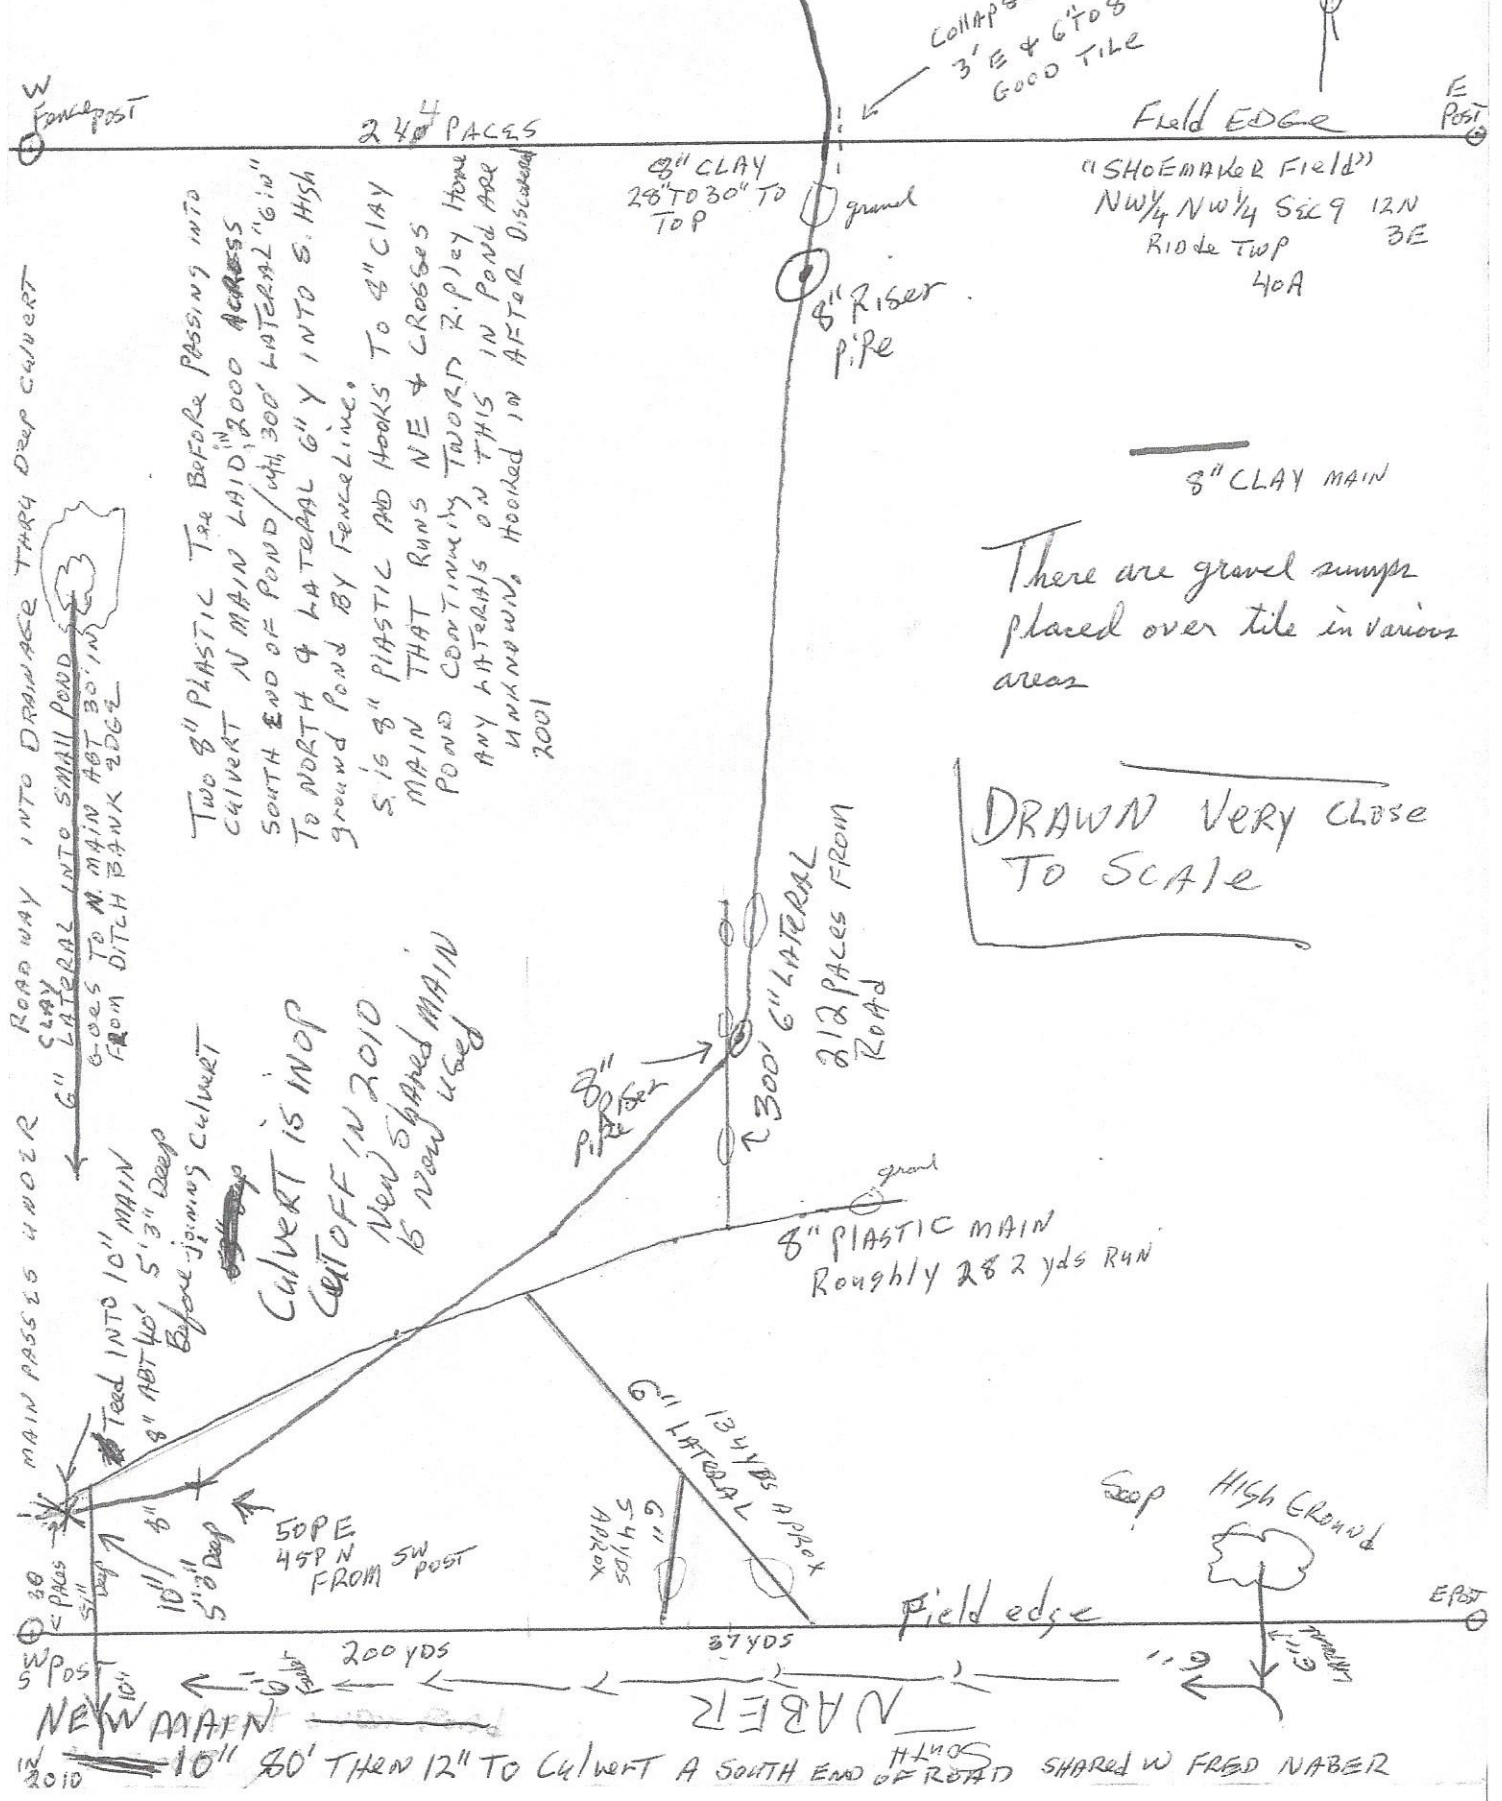 COLLAPS
3' E & 6' TO 8
GOOD TILE
W
Fence POST
PACES
Field EDGE
E
POST
8" CLAY
28" TO 30" TO
TOP
gravel
"SHOEMAKER Field"
NW¼ NW¼ SEC 9 12N
3E
40A
8" Riser
PiPe
8" CLAY MAIN
There are gravel sumps
placed over tile in various
areas
DRAWN VERY CLOSE
TO SCALE
MAIN PASSES UNDER ROADWAY INTO DRAINAGE THRU DEEP CULVERT
CLAY
6" LATERAL INTO SMALL POND S
GOES TO N. MAIN ABT 30' IN
FROM DITCH BANK EDGE
TWO 8" PLASTIC TEE BEFORE PASSING INTO
CULVERT N MAIN LAID IN 2000 ACROSS
SOUTH END OF POND / with 300' LATERAL "6 in"
TO NORTH & LATERAL 6" Y INTO S. High
ground Pond BY FENCELINE.
S. IS 8" PLASTIC AND HOOKS TO 8" CLAY
MAIN THAT RUNS NE & CROSSES
POND CONTINUING TWORD Ripley Home
ANY LATERALS ON THIS IN POND ARE
UNKNOWN. Hooked IN AFTER DISCOVERED
2001
6" LATERAL
212 PACES FROM
ROAD
↑ 300'
8"
RISER
PiPe
Culvert is INOP
CUT OFF IN 2010
New Shared MAIN
is now used
Teed INTO 10" MAIN
8" ABT 40' 5'3" Deep
Before joining Culvert
gravel
8" PLASTIC MAIN
Roughly 282 yds RUN
6" LATERAL
134 YDS APROX
6"
54 YDS
APROX
30
PACES
51"
Deep
10" / 8"
5'3" Deep
50P E
45P N
FROM SW POST
Seep HIGH GROUND
Field edge
E POST
SW POST
10"
200 YDS
37 YDS
6"
6"
6"
NABER
SOUTH
NEW MAIN
IN 2010
10" 80' THEN 12" TO Culvert A SOUTH END OF ROAD SHARED W FRED NABER